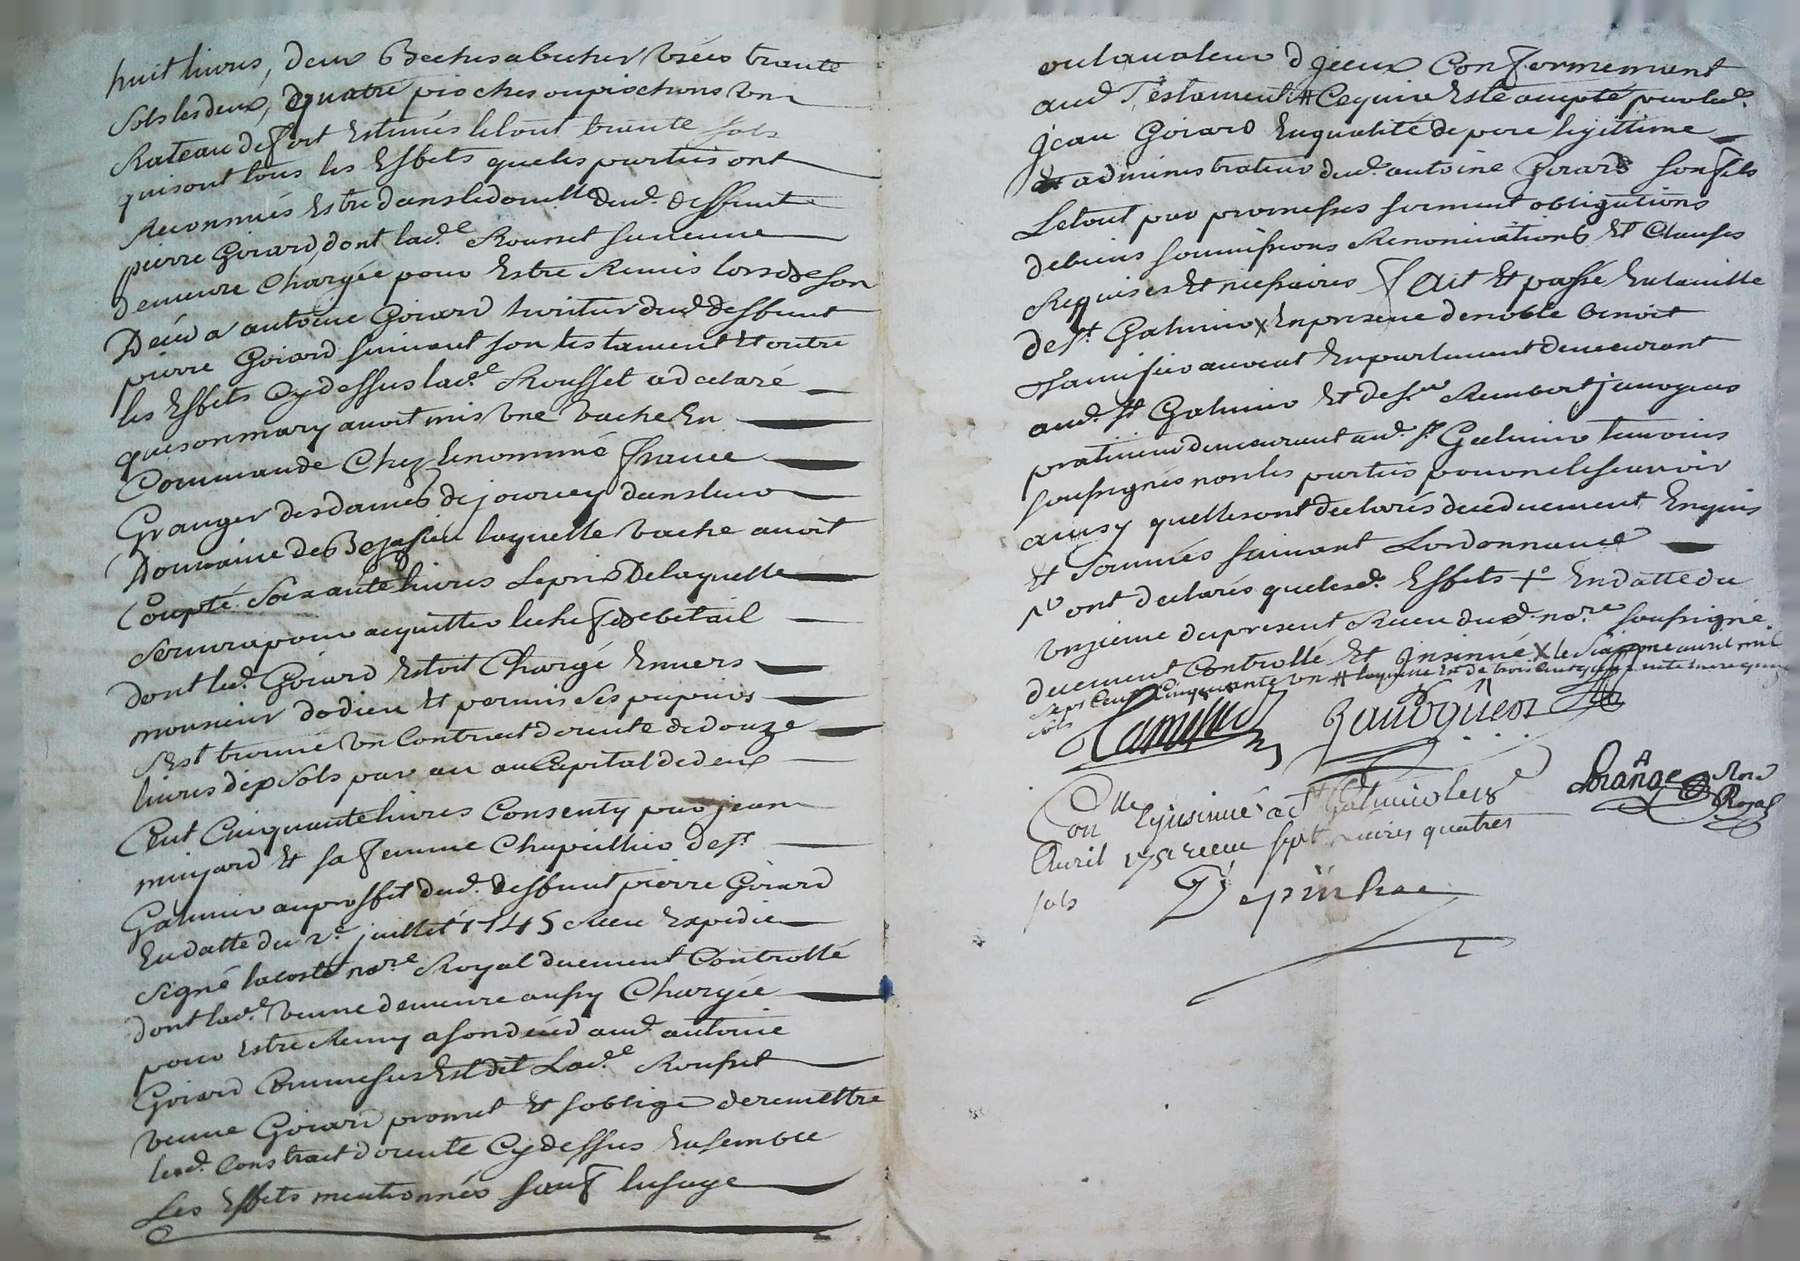 huit livres, deux Beches a becher uzées trante
sols les deux, quatre pioches ou piochons un
Rateau de fort Estimés le tout trante sols
qui sont tous les Effets que les parties ont
Reconnués Estre dans le douelle dud. deffunt
pierre Goirard, dont lad.e Rousset sa veuve
demeure Chargée pour Estre Remis lors de son
Déced a antoine Goirard heritier dud. deffunt
pierre Goirard suivant son testament Et outre
les Effets Cy dessus lad.e Rousset a declaré
que son mary avoit mis une vache En
Commande Chez le nommé france
Granger des dames de jourcey dans leur
Domaine de laquelle vache avoit
Coupté soixante livres Le prix De laquelle
servira pour acquitter le chef de betail
dont led. Goirard Estoit Chargé Envers
monsieur dodieu Et permis ses papiers
s'Est trouvé un Contract de rente de douze
livres dix sols par an au Capital de deux
Cent Cinquante livres Consenty par jean
minjard Et sa femme Chapellier de st
Galmier au proffit dud. deffunt pierre Goirard
En datte du 2e juillet 1745 Receu Expedié
signé lacoste no.re Royal duement Controllé
dont lad. veuve demeure aussy Chargée
pour Estre Remy a son déced aud. antoine
Goirard Comme sus Est dit Lad.e Rousset
veuve Goirard promet Et s'oblige de remettre
led. Constract de rente Cy dessus Ensemble
Les Effets mentionnés sauf l'usage
ou la valeur d'jceux Conformement
aud. Testament # Ce qui a Esté accepté par led.
jean Goirard En qualité de pere legittime
& administrateur dud. antoine Goirard son fils
Le tout par promesses serment obligations
de biens soumissions Renonciations Et Clauses
Requises Et nessaires fait Et passé En la ville
de st. Galmier x En presence de noble benoit
avocat En parlement demeurant
aud. st Galmier Et de sr Rambert javogues
praticien demeurant aud. st. Galmier temoins
soussignés non les parties pour ne le scavoir
ainsy qu'elles ont declarés de ce duement Enquis
Et sommés suivant Lordonnance
ont declarés que lesd. Effets + En datte du
unzieme du present Receu dud. no.re soussigné
duement Controllé Et Jnsinué x le sixieme avril mil
sept Cent Cinquante un # laquelle Est de trois Cent
sols
Javoguen
Lorange No.re
Royal
Con.lle Et jnsinué a st Galmier le 18e
Avril 1751 receu sept livres quatres
sols Depinhac